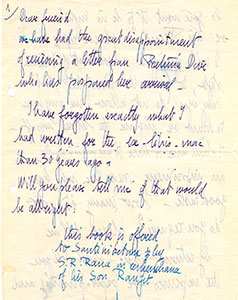 Dear friend
we have had the great disappointment
of receiving a letter from Paulina Dixi
who has postponed her arrival -
I have forgotten exactly what I
had written for the Ex-libris - more
than 30 years ago -
Will you please tell me if that would
be allright:
This book is offered
to Santiniketan by
S.R. Rana in remembrance
of his Son Ranjit